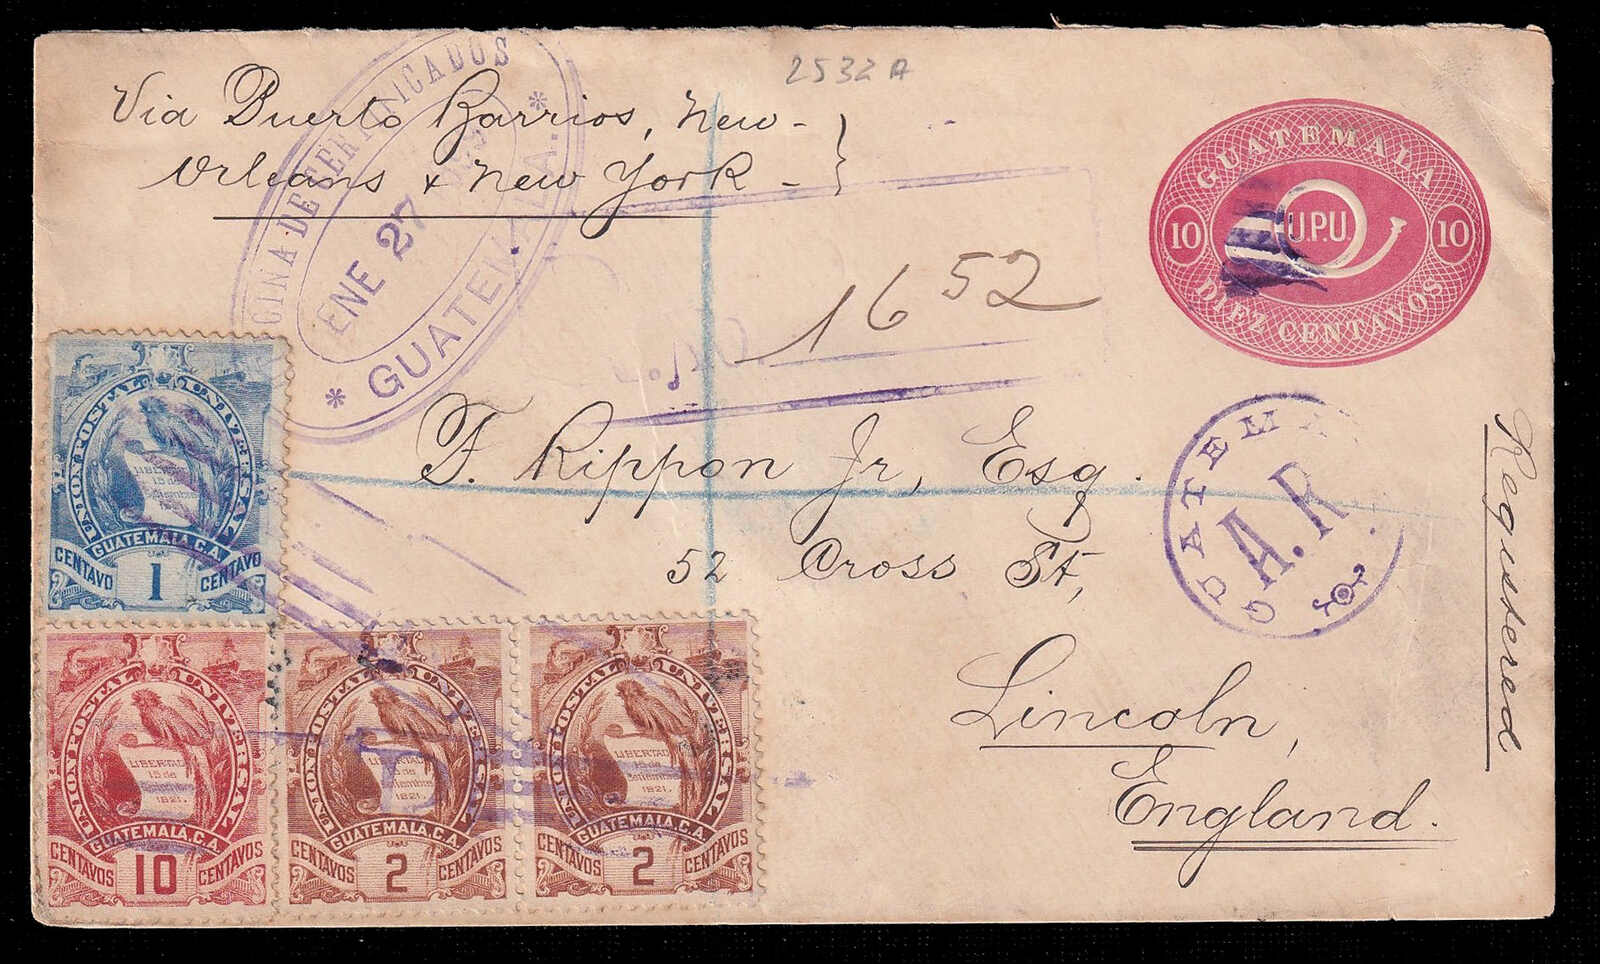 2532A
Via Puerto Barrios, New-
Orleans & New York -
OFICINA DE CERTIFICADOS
ENE 27
* GUATEMALA. *
GUATEMALA
10 U.P.U. 10
DIEZ CENTAVOS
No. 1652
F. Rippon Jr, Esq.
52 Cross St,
Lincoln,
England.
Registered
GUATEMA
A.R.
UNION POSTAL UNIVERSAL
LIBERTAD
15 de
Setiembre
GUATEMALA. C.A.
CENTAVO 1 CENTAVO
UNION POSTAL UNIVERSAL
LIBERTAD
15 de
Setiembre
1821.
GUATEMALA. C.A.
CENTAVOS 10 CENTAVOS
UNION POSTAL UNIVERSAL
LIBERTAD
15 de
Setiembre
1821.
GUATEMALA. C.A.
CENTAVOS 2 CENTAVOS
UNION POSTAL UNIVERSAL
LIBERTAD
15 de
Setiembre
1821.
GUATEMALA. C.A.
CENTAVOS 2 CENTAVOS